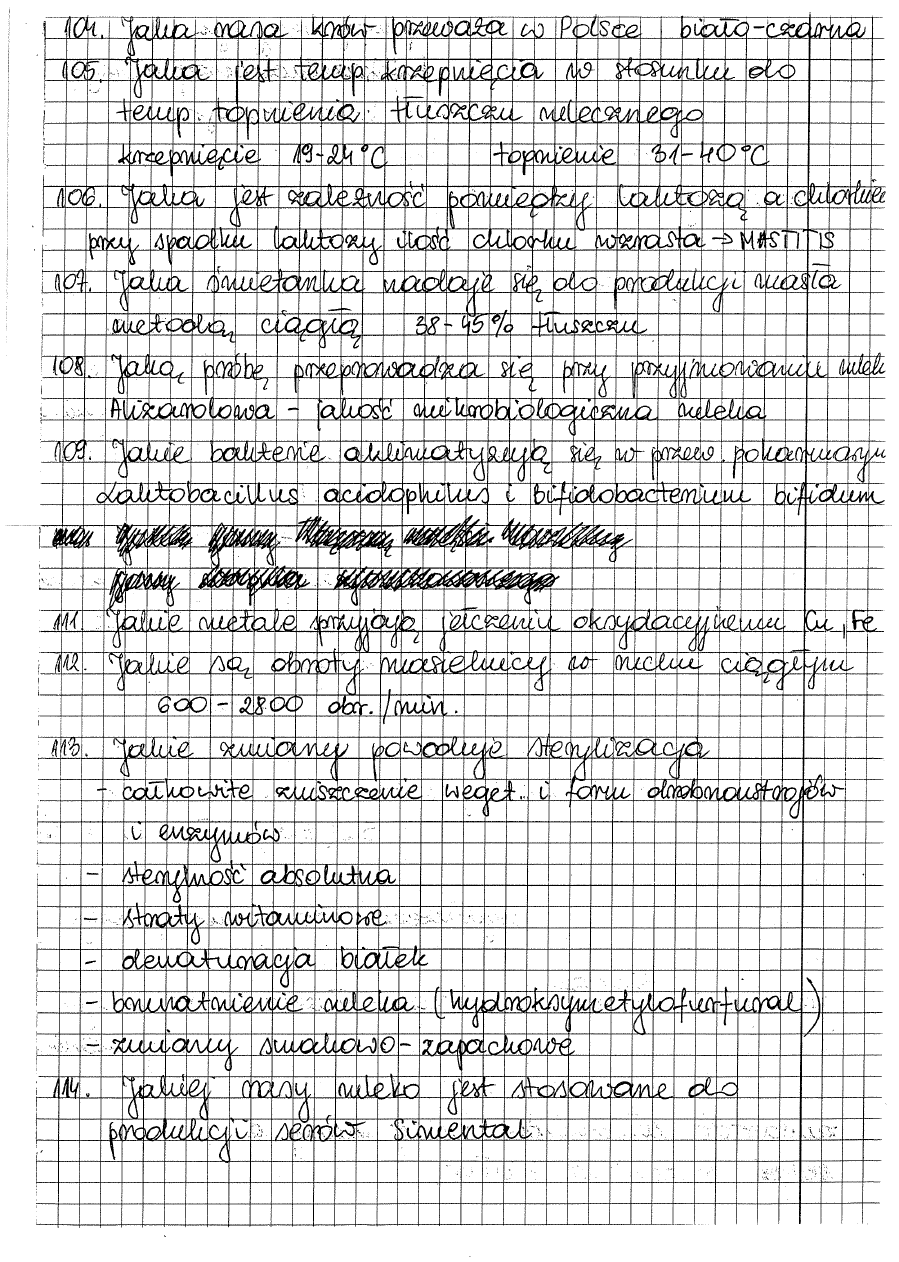 104. Jaka rasa krów przeważa w Polsce biało-czarna
105. Jaka jest temp. krzepnięcia w stosunku do
temp. topnienia tłuszczu mlecznego
krzepnięcie 19-24°C topnienie 31-40°C
106. Jaka jest zależność pomiędzy laktozą a
przy spadku laktozy ilość chlorku wzrasta → MASTITIS
107. Jaka śmietanka nadaje się do produkcji masła
metodą ciągłą 38-45% tłuszczu
108. Jaką próbę przeprowadza się przy przyjmowaniu mlek
Alizarolowa - jakość mikrobiologiczna mleka
109. Jakie bakterie aklimatyzują się w przew. pokarmowym
Laktobacillus acidophilus i bifidobacterium bifidum
111. Jakie metale przyjają jełczeniu oksydacyjnemu Cu, Fe
112. Jakie są obroty masielnicy w ruchu ciągłym
600 - 2800 obr./min.
113. Jakie zmiany powoduje sterylizacja
- całkowite zniszczenie weget. i form drobnoustrojów
i enzymów
- sterylność absolutna
- straty witaminowe
- denaturacja białek
- brunatnienie mleka (hydroksymetylofurfural)
- zmiany smakowo-zapachowe
114. Jakiej rasy mleko jest stosowane do
produkcji serów Simental